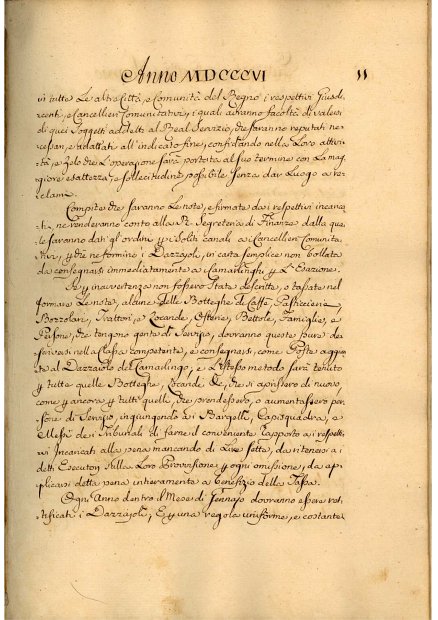 Anno MDCCCVI 11
in tutte Le altre Città, e Comunità del Regno i respettivi Giusdi,
centi, e Cancellieri Comunitativi, i quali avranno facoltà di valersi
di quei Soggetti addetti al Real Servizio, che saranno reputati ne,
cessari, e adattati all'indicato fine, confidando nella Loro attivi,
tà, e Zelo che L'operazione sarà portata al suo termine con La mag,
giore esattezza, e sollecitudine possibile senza dar Luogo a re,
clami.
Compite che saranno Le note, e firmate da i respettivi incari,
ti, ne renderanno conto alla R. Segreteria di Finanze dalla qua,
le saranno dati gl'ordini per i soliti canali a i Cancellieri Comunita,
tivi, perchè ne formino i Dazzajoli, in carta semplice non bollata
da consegnarsi immediatamente a i Camarlinghi per L'Esazione.
Se per inavvertenza non fossero State descritte, o tassate nel
formare Le note, alcune delle Botteghe di Caffè, Pasticcieria
Bozzolari, Trattori, e Locande, Osterie, Bettole, Famiglie, e
Persone, che tengono gente di Servizio, dovranno queste pure de,
scriversi nella Classe competente, e consegnarsi come Poste aggiun,
te al Dazzaiolo del Camarlingo, e L'istesso metodo sarà tenuto
per tutte quelle Botteghe, Locande &c, che si aprissero di nuovo,
come per ancora per tutti quelli, che prendessero, o aumentassero per,
sone di Servizio, ingiungendo a i Bargelli, Capisquadra, e
Messi de i Tribunali di farne il conveniente rapporto a i respetti,
vi Incaricati alla pena mancando di Lire Sette, da ritenersi a i
detti Esecutori sulla Loro Provvisione per ogni omissione, da ap,
plicarsi detta pena intieramente a benefizio della Tassa.
Ogni Anno dentro il Mese di Gennajo dovranno essere ret,
tificati i Dazzajoli, E per una regola uniforme, e costante